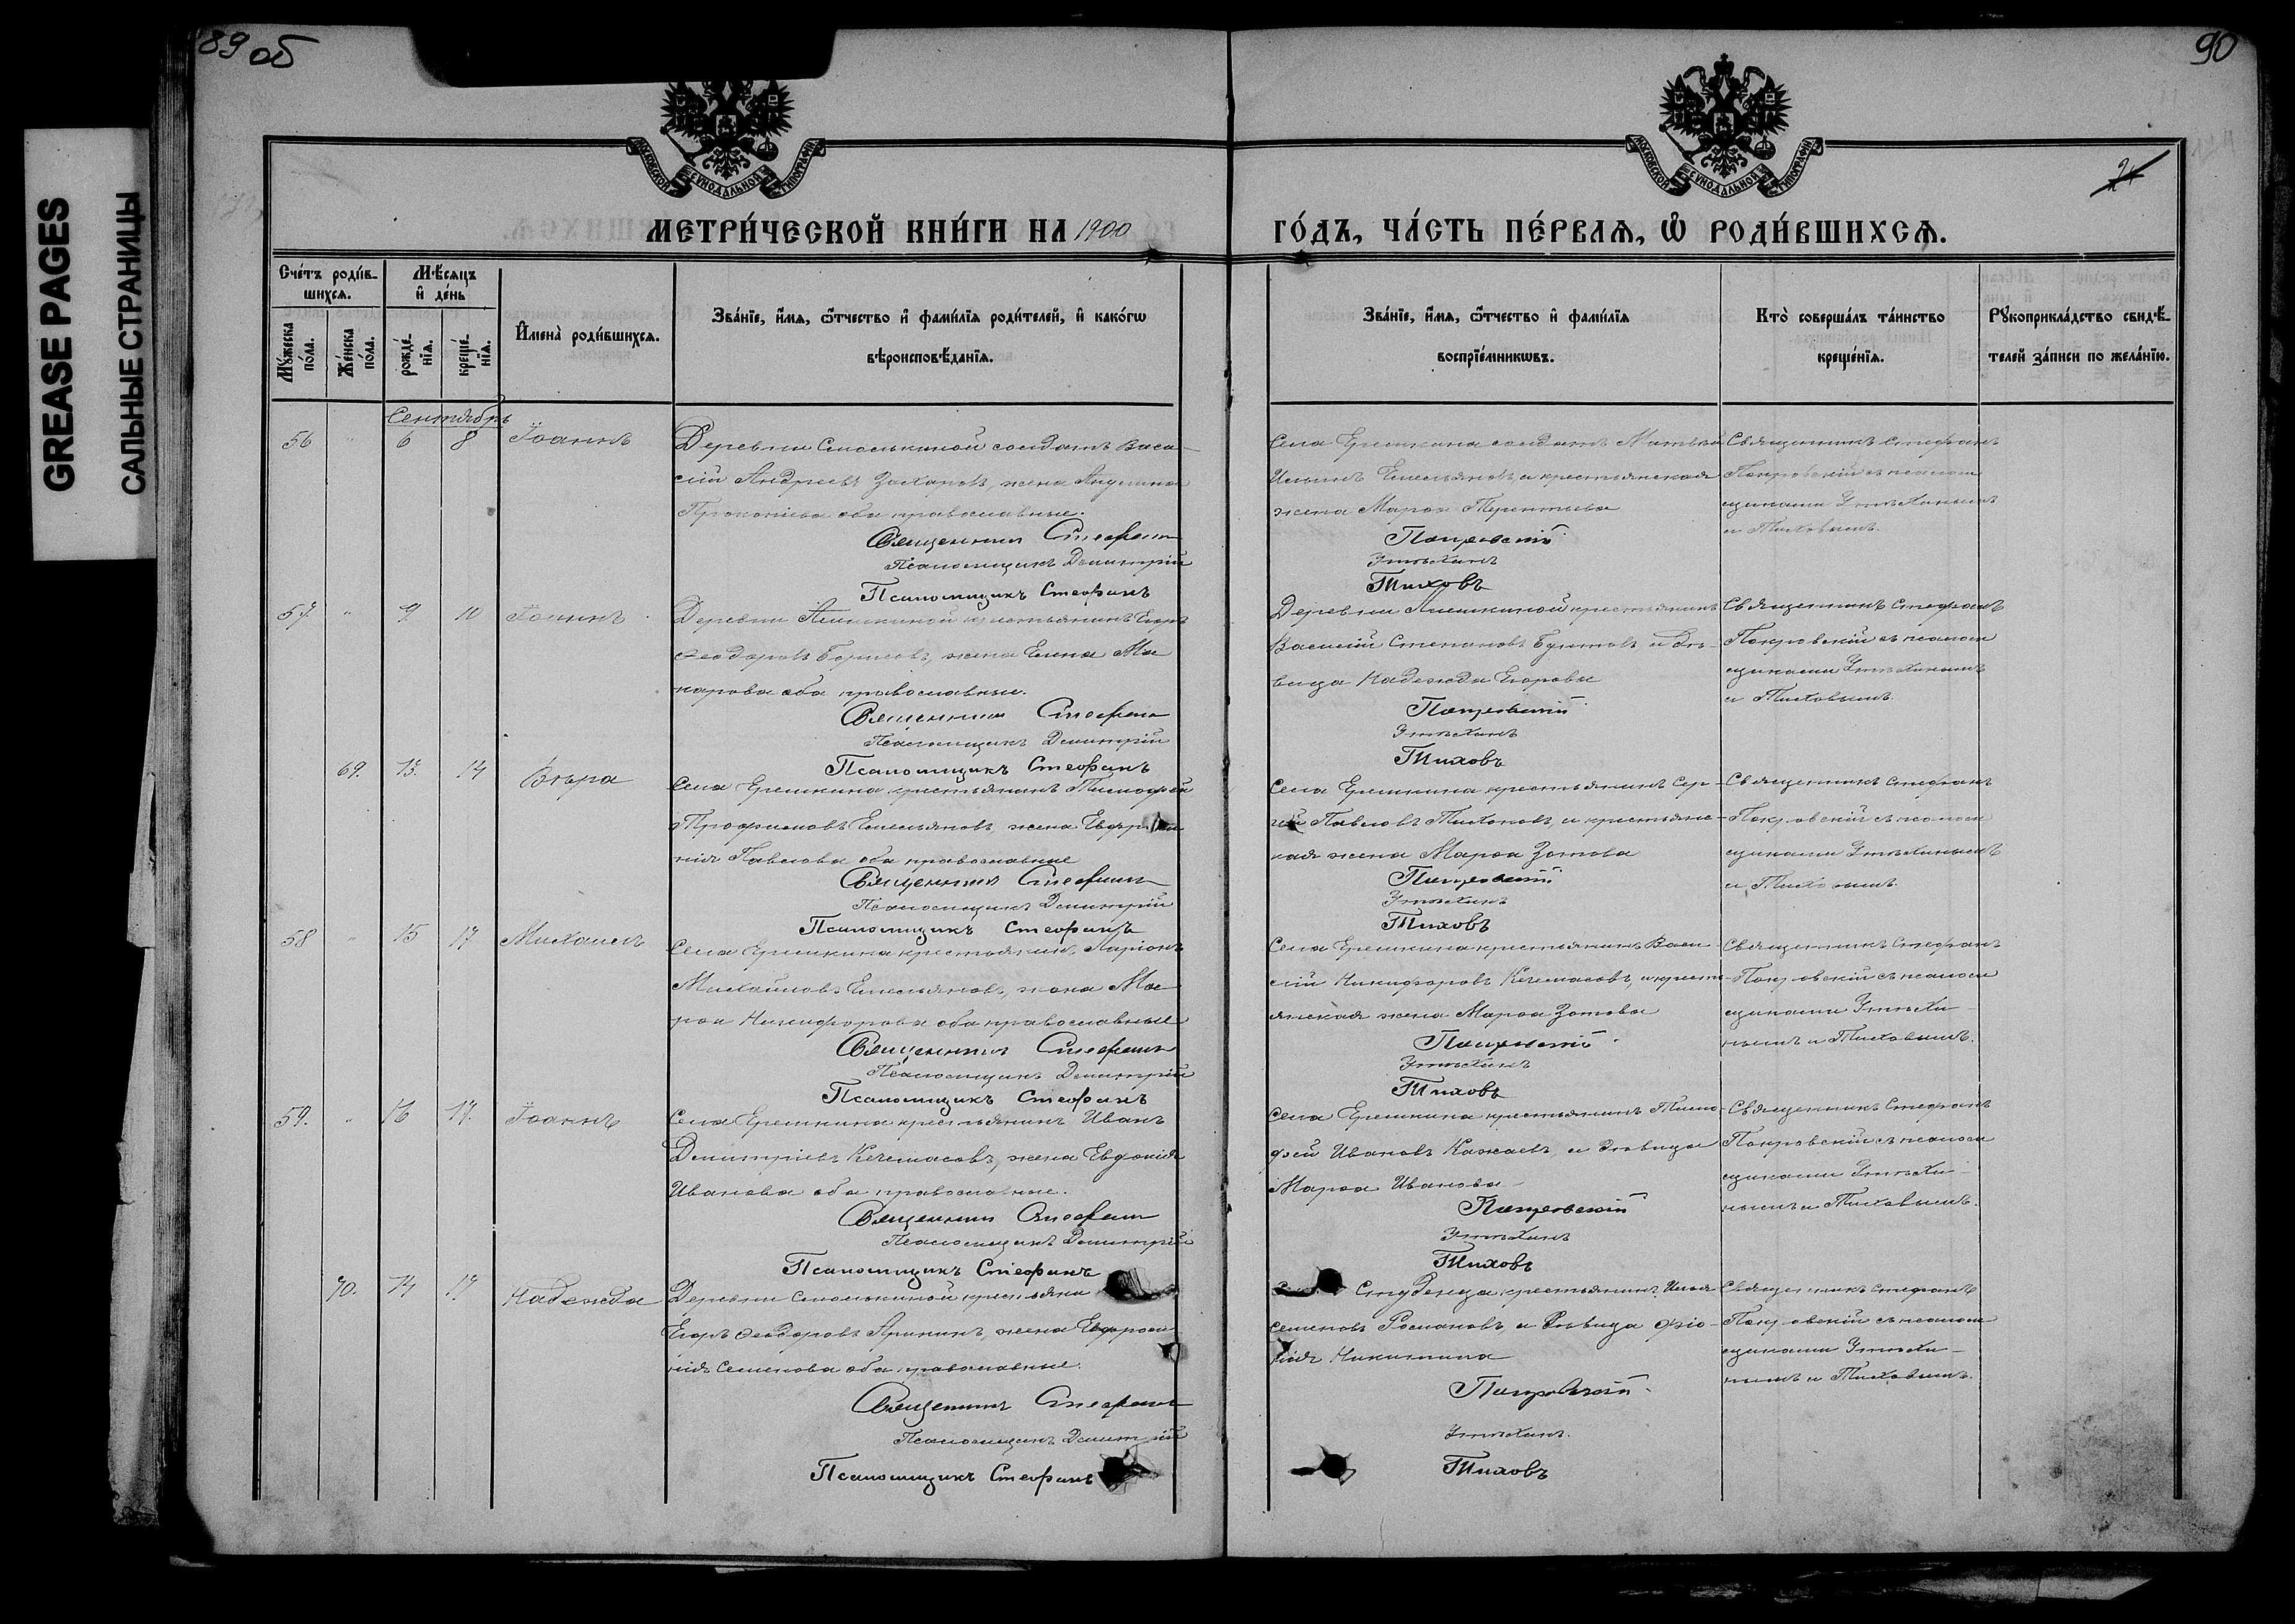 89 об
90
GREASE PAGES
САЛЬНЫЕ СТРАНИЦЫ
МОСКОВСКОЙ СѴНОДАЛЬНОЙ ТИПОГРАФІИ
МОСКОВСКОЙ СѴНОДАЛЬНОЙ ТИПОГРАФІИ
МЕТРИ́ЧЕСКОЙ КНИ́ГИ НА 1900
ГО́ДЪ, ЧА́СТЬ ПЕ́РВАѦ, Ѡ РОДИ́ВШИХСѦ.
Сче́тъ роди́в-
шихсѧ.
Мѣ́сѧцъ
и де́нь
Мꙋ́жеска по́ла.
Же́нска по́ла.
рожде́-нїѧ.
креще́-нїѧ.
И҆мена̀ роди́вшихсѧ.
Зва́нїе, и҆́мѧ, ѻ҆́тчество и҆ фами́лїѧ роди́телей, и҆ како́гѡ
вѣроисповѣ́данїѧ.
Зва́нїе, и҆́мѧ, ѻ҆́тчество и҆ фами́лїѧ
воспрїе́мникѡвъ.
Кто̀ соверша́лъ та́инство
креще́нїѧ.
Рꙋкоприкла́дство свидѣ́-
телей за́писи по жела́нїю.
Сентябрь
56 " 6 8 Іоаннъ
Деревни Смолькиной солдатъ Васи-
лій Андреевъ Захаровъ, жена Акулина
Прокопіева оба православные.
Священникъ Стефанъ
Псаломщикъ Димитрій
Псаломщикъ Стефанъ
Села Ерёмкина солдатъ Матвей
Ильинъ Емельяновъ, и крестьянская
жена Марѳа Терентьева
Покровскій
Утѣхинъ
Тиховъ
Священникъ Стефанъ
Покровскій съ псалом
щиками Утѣхинымъ
и Тиховымъ.
57. " 9. 10 Іоаннъ
Деревни Алёшкиной крестьянинъ Егоръ
Ѳеодоровъ Борисовъ, жена Елена Ма
карова оба православные.
Священникъ Стефанъ
Псаломщикъ Димитрій
Псаломщикъ Стефанъ
Деревни Алёшкиной крестьянинъ
Василій Степановъ и дѣ-
вица Надежда Егорова
Покровскій
Утѣхинъ
Тиховъ
Священникъ Стефанъ
Покровскій съ псалом
щиками Утѣхинымъ
и Тиховымъ.
69. 13. 14 Вѣра
Села Ерёмкина крестьянинъ Тимофей
Трофимовъ Емельяновъ, жена
нія Павлова оба православные
Священникъ Стефанъ
Псаломщикъ Димитрій
Псаломщикъ Стефанъ
Села Ерёмкина крестьянинъ Сер-
гій Павловъ Тихоновъ, и крестьянс-
кая жена Марѳа Зотова
Покровскій
Утѣхинъ
Тиховъ
Священникъ Стефанъ
Покровскій съ псалом
щиками Утѣхинымъ
и Тиховымъ.
58 " 15 17 Михаилъ
Села Ерёмкина крестьянинъ Ларіонъ
Михайловъ Емельяновъ, жена Ма
рѳа Никифорова оба православные
Священникъ Стефанъ
Псаломщикъ Димитрій
Псаломщикъ Стефанъ
Села Ерёмкина крестьянинъ Васи-
лій Никифоровъ Кечемасовъ, и кресть-
янская жена Марѳа Зотова
Покровскій
Утѣхинъ
Тиховъ
Священникъ Стефанъ
Покровскій съ псалом
щиками Утѣхи-
нымъ и Тиховымъ.
59. " 16 17. Іоаннъ
Села Ерёмкина крестьянинъ Иванъ
Димитріевъ Кечемасовъ, жена Евдокія
Иванова оба православные.
Священникъ Стефанъ
Псаломщикъ Димитрій
Псаломщикъ Стефанъ
Села Ерёмкина крестьянинъ Тимо-
фей Ивановъ Кажаевъ, и дѣвица
Марѳа Иванова
Покровскій
Утѣхинъ
Тиховъ
Священникъ Стефанъ
Покровскій съ псалом
щиками Утѣхи-
нымъ и Тиховымъ.
70. 14 17 Надежда
Деревни Смолькиной крестьяни
Егоръ Ѳеодоровъ Аринин, жена Евфроси
нія Семенова оба православные.
Священникъ Стефанъ
Псаломщикъ Димитрій
Псаломщикъ Стефанъ
Студенца крестьянинъ Илья
Семеновъ Романовъ, и дѣвица
Никитина
Покровскій
Утѣхинъ.
Тиховъ
Священникъ Стефанъ
Покровскій съ псалом
щиками Утѣхи-
нымъ и Тиховымъ.